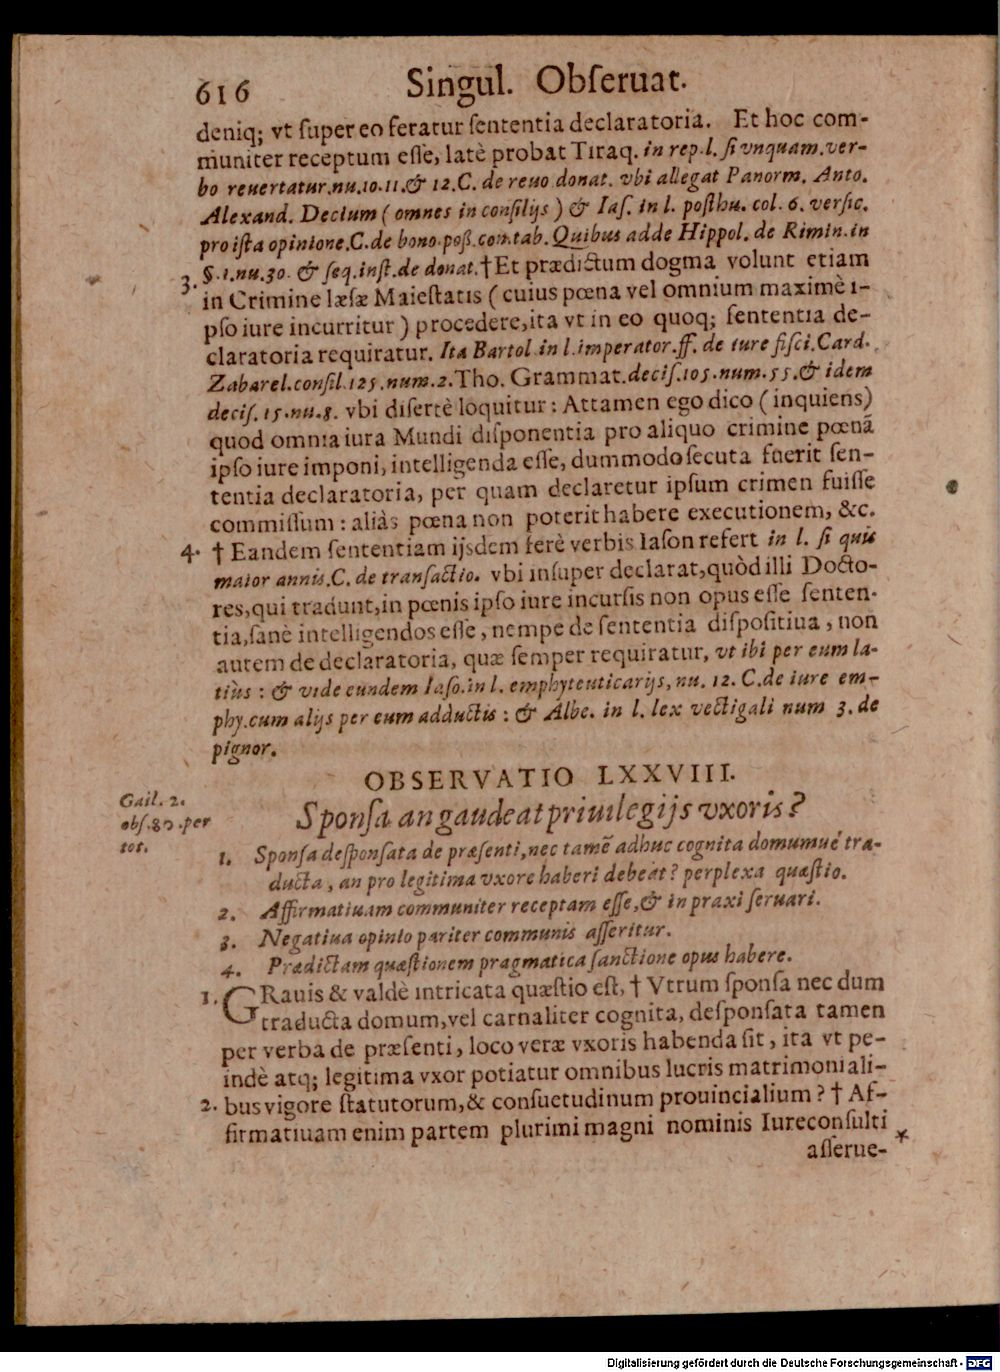 616 Singul. Obſeruat.
deniq; vt ſuper eo feratur ſententia declaratoria. Et hoc com-
muniter receptum eſſe, latè probat Tiraq. in rep. l. ſi vnquam. ver-
bo reuertatur. nu. 10. 11. & 12. C. de reuo donat. vbi allegat Panorm. Anto.
Alexand. Decium ( omnes in conſilijs ) & Iaſ. in l. poſthu. col. 6. verſic.
pro iſta opinione. C. de bono. poß. com. tab. Quibus adde Hippol. de Rimin. in
3. §. 1. nu. 30. & ſeq. inſt. de donat. † Et prædictum dogma volunt etiam
in Crimine læſæ Maieſtatis ( cuius pœna vel omnium maximè i-
pſo iure incurritur ) procedere, ita vt in eo quoq; ſententia de-
claratoria requiratur. Ita Bartol. in l. imperator. ff. de iure fiſci. Card.
Zabarel. conſil. 125. num. 2. Tho. Grammat. deciſ. 105. num. 55. & idem
deciſ. 15. nu. 8. vbi diſertè loquitur: Attamen ego dico ( inquiens)
quod omnia iura Mundi diſponentia pro aliquo crimine pœnã
ipſo iure imponi, intelligenda eſſe, dummodo ſecuta fuerit ſen-
tentia declaratoria, per quam declaretur ipſum crimen fuiſſe
commiſſum: aliàs pœna non poterit habere executionem, &c.
4. † Eandem ſententiam ijsdem ferè verbis Iaſon refert in l. ſi quis
maior annis. C. de tranſactio. vbi inſuper declarat, quòd illi Docto-
res, qui tradunt, in pœnis ipſo iure incurſis non opus eſſe ſenten-
tia, ſanè intelligendos eſſe, nempe de ſententia diſpoſitiua, non
autem de declaratoria, quæ ſemper requiratur, vt ibi per eum la-
tiùs: & vide eundem Iaſo. in l. emphyteuticarijs, nu. 12. C. de iure em-
phy. cum alijs per eum adductis: & Albe. in l. lex vectigali num 3. de
pignor.
OBSERVATIO LXXVIII.
Gail. 2.
obſ. 80. per
tot.
Sponſa an gaudeat priuilegijs vxoris?
1. Sponſa deſponſata de præſenti, nec tamẽ adhuc cognita domumué tra-
ducta, an pro legitima vxore haberi debeat? perplexa quæſtio.
2. Affirmatiuam communiter receptam eſſe, & in praxi ſeruari.
3. Negatiua opinio pariter communis aſſeritur.
4. Prædictam quæſtionem pragmatica ſanctione opus habere.
1. GRauis & valdè intricata quæſtio eſt, † Vtrum ſponſa nec dum
traducta domum, vel carnaliter cognita, deſponſata tamen
per verba de præſenti, loco veræ vxoris habenda ſit, ita vt pe-
indè atq; legitima vxor potiatur omnibus lucris matrimoniali-
2. bus vigore ſtatutorum, & conſuetudinum prouincialium? † Af-
firmatiuam enim partem plurimi magni nominis Iureconſulti
aſſerue-
Digitalisierung gefördert durch die Deutsche Forschungsgemeinschaft - DFG